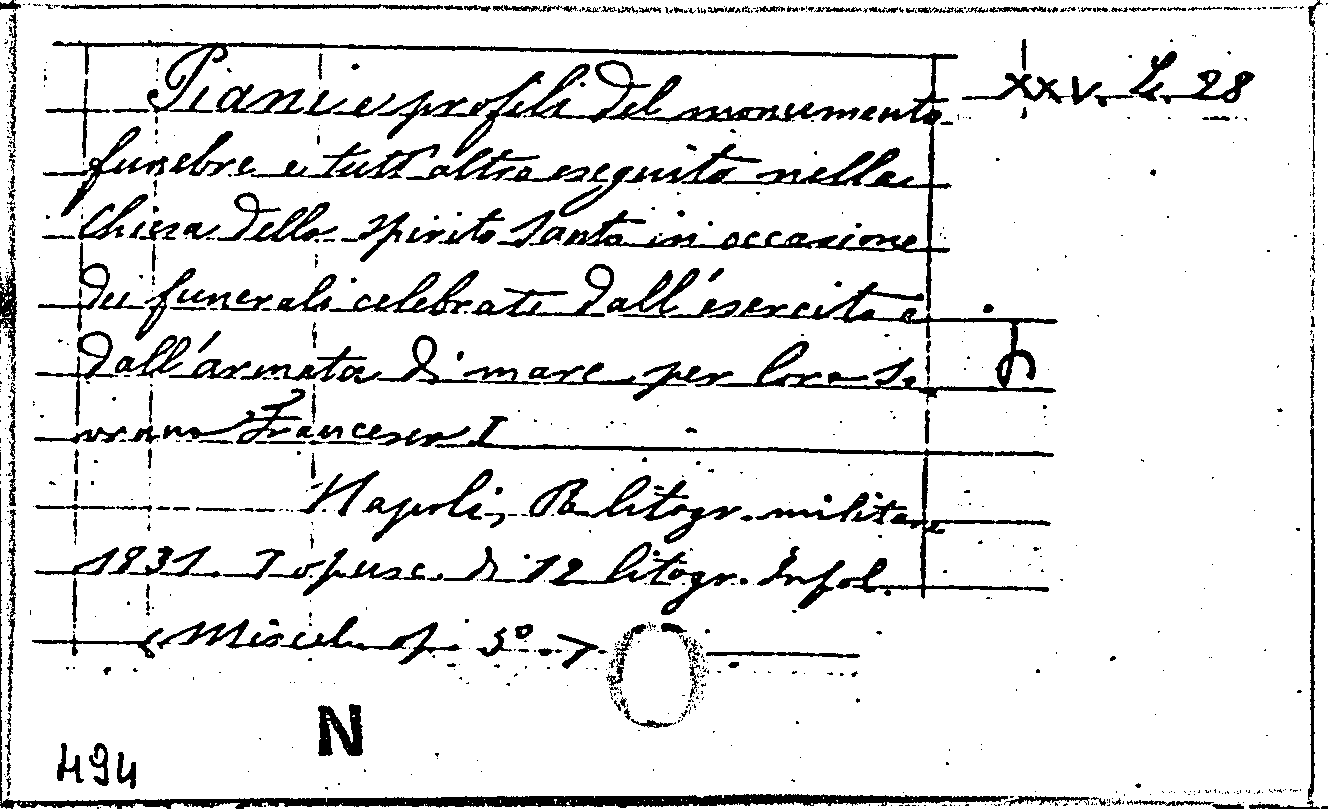 Piani e profili del monumento XXV. L. 28
funebre e tutt'altro eseguito nella
Chiesa dello Spirito Santo in occasione
dei funerali celebrati dall'esercito e
dall'armata di mare per loro So
vrano Francesco I
Napoli, R litogr. militare
1831. I opusc. di 12 litogr. in fol.
(Miscel. op. 5º.)
N
494